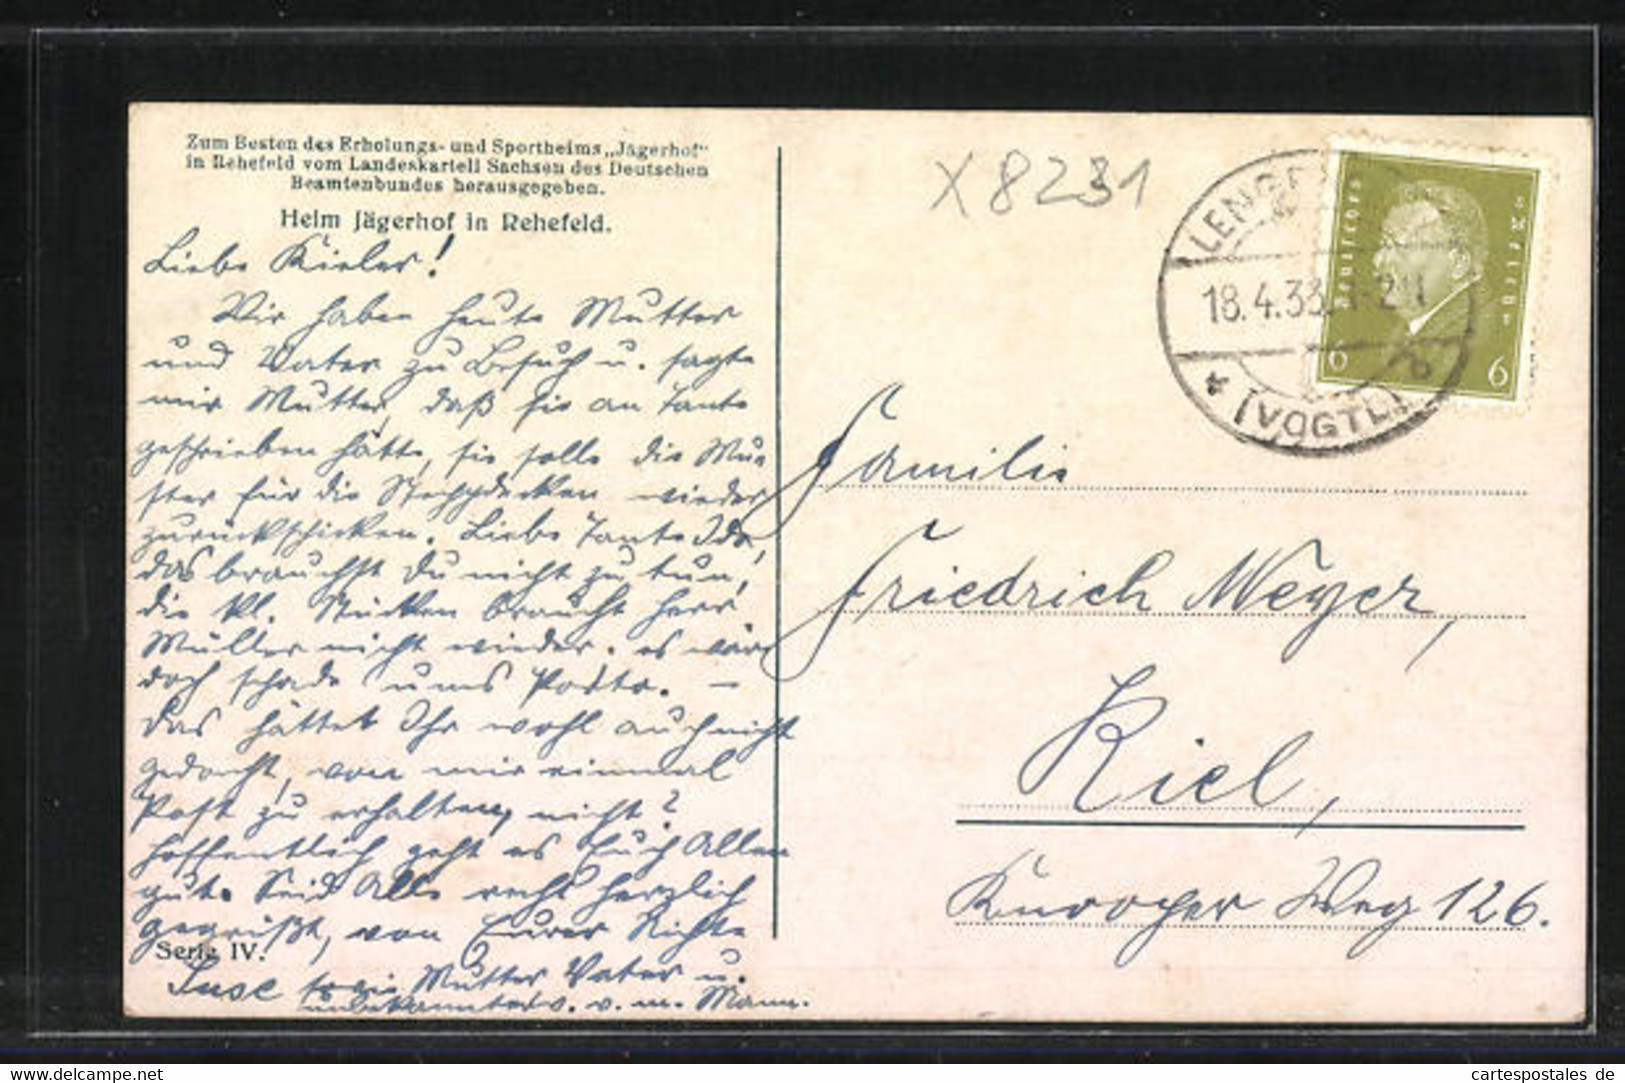 Zum Besten des Erholungs- und Sportheims „Jägerhof“
in Rehefeld vom Landeskartell Sachsen des Deutschen
Beamtenbundes herausgegeben.
Heim Jägerhof in Rehefeld.
Liebe Kieler!
Wir haben heute Mutter
und Vater zu Besuch u. sagte
mir Mutter, daß sie an Tante
geschrieben hätte, sie solle die Mu-
ster für die Steppdecken wieder
zurückschicken. Liebe Tante Ida,
das brauchst Du nicht zu tun,
die kl. Stücken braucht Herr
Müller nicht wieder. es wär
doch schade ums Porto. –
Das hättet Ihr wohl auch nicht
gedacht, von mir einmal
Post zu erhalten, nicht?
Hoffentlich geht es Euch Allen
gut. Seid Alle recht herzlich
gegrüßt, von Eurer Nichte
Serie IV.
Suse sowie Mutter Vater u.
unbekannter v. m. Mann.
X 8231
LENGE
18.4.33
* (VOGTL)
Deutsches Reich
6 6
Familie
Friedrich Meyer,
Kiel,
Knooper Weg 126.
https://www.delcampe.net
cartespostales_de